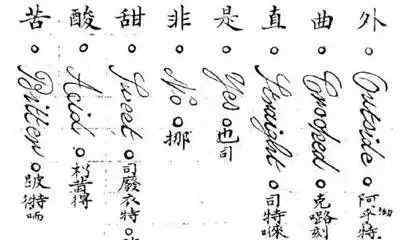 外 Outside
曲 Crooked 克嚕刻
直 Straight 司特
是 Yes 也司
非 No 挪
甜 Sweet 司廢衣特
酸 Acid
苦 Bitter